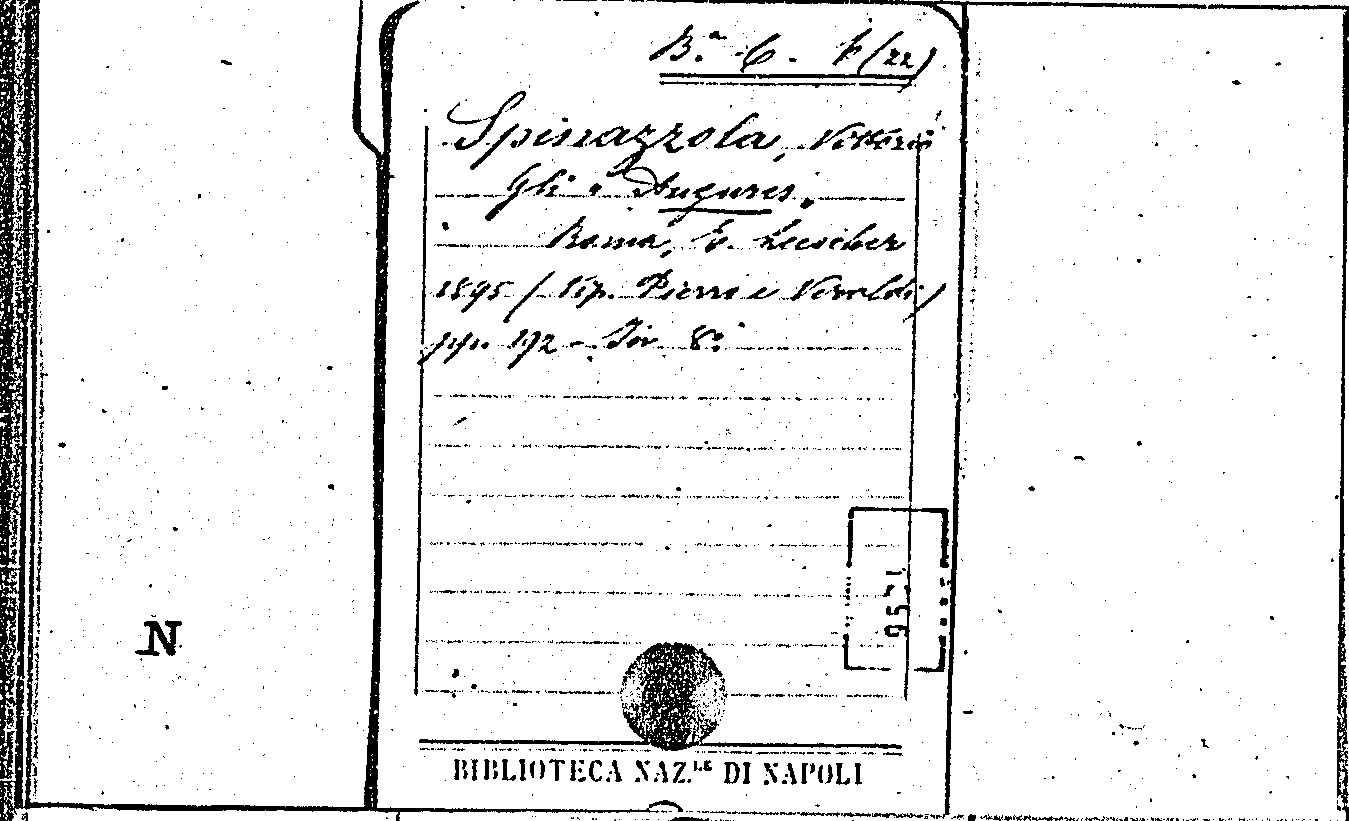 B.ª C. k (22)
Spinazzola, Vittorio
Gli "Augures".
Roma, E. Loescher
1895 (Tip. Pierro e Veraldi)
pp. 192 - in 8.°
N
BIBLIOTECA NAZ.LE DI NAPOLI